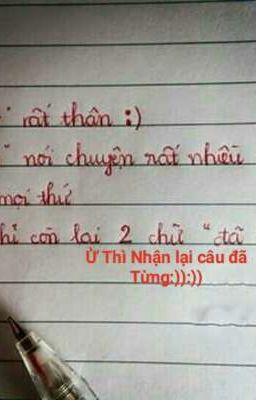 " rất thân :)
" nói chuyện rất nhiều
mọi thứ
hỉ còn lại 2 chữ " đã
Ừ Thì Nhận lại câu đã
Từng:)):))